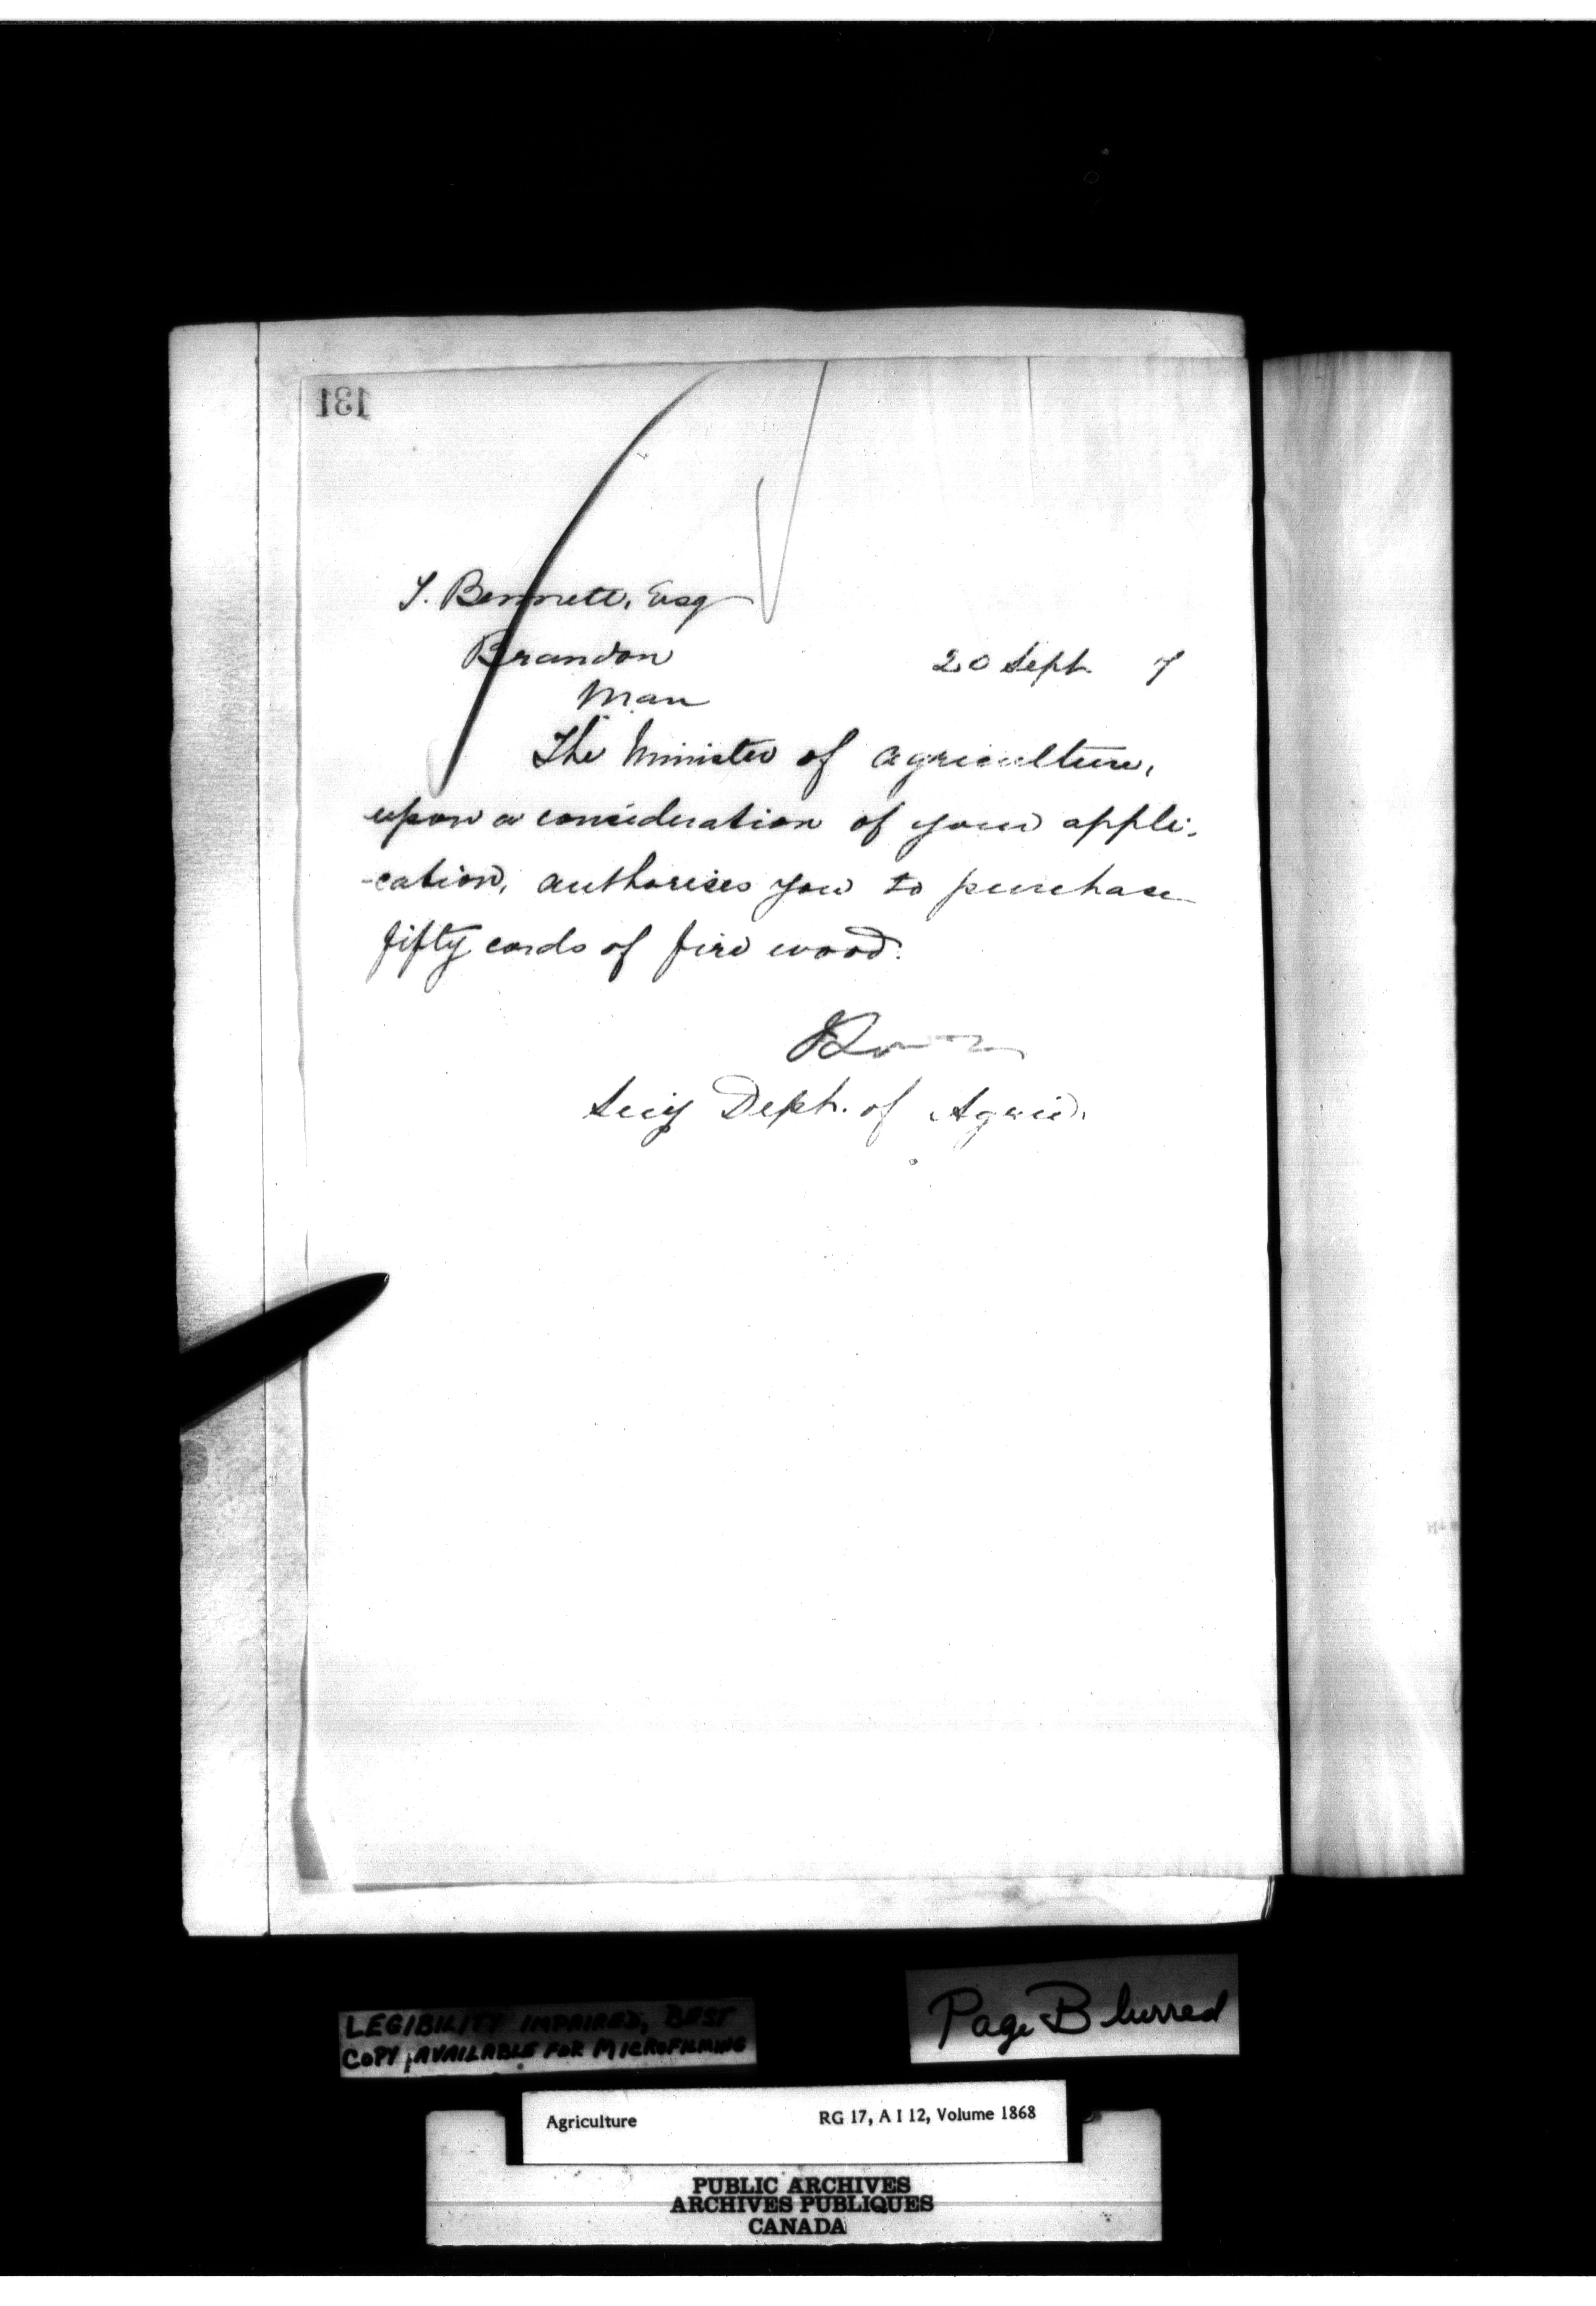 131
T. Bennett, Esq
Brandon
20 Sept. 7
Man
The Minister of Agriculture,
upon a consideration of your appli-
-cation, authorises you to purchase
fifty cords of fire wood.
Secy Dept. of Agric.
LEGIBILITY IMPAIRED, BEST
COPY AVAILABLE FOR MICROFILMING
Page Blurred
Agriculture RG 17, A I 12, Volume 1868
PUBLIC ARCHIVES
ARCHIVES PUBLIQUES
CANADA